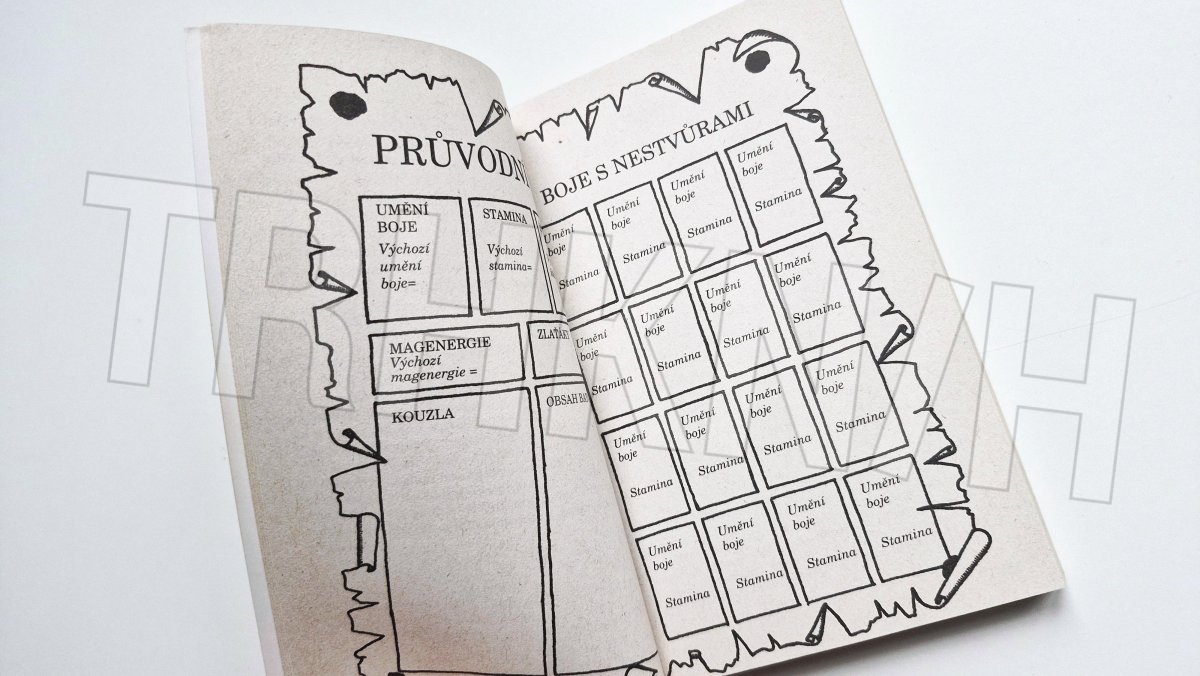 PRŮVODN
UMĚNÍ
BOJE
Výchozí
umění
boje=
STAMINA
Výchozí
stamina=
MAGENERGIE
Výchozí
magenergie =
ZLAŤÁKY
KOUZLA
OBSAH BA
BOJE S NESTVŮRAMI
Umění
boje
Stamina
Umění
boje
Stamina
Umění
boje
Stamina
Umění
boje
Stamina
Umění
boje
Stamina
Umění
boje
Stamina
Umění
boje
Stamina
Umění
boje
Stamina
Umění
boje
Stamina
Umění
boje
Stamina
Umění
boje
Stamina
Umění
boje
Stamina
Umění
boje
Stamina
Umění
boje
Stamina
Umění
boje
Stamina
Umění
boje
Stamina
TRHKNIH